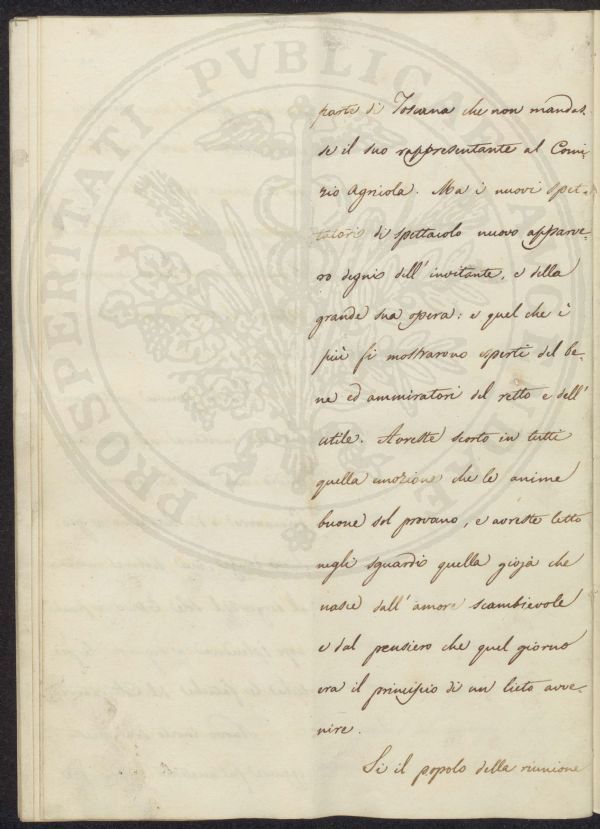 parte di Toscana che non mandas-
se il suo rappresentante al Comi-
zio Agricola. Ma i nuovi spet-
tatori di spettacolo nuovo apparve-
ro degni dell' invitante, e della
grande sua opera: e quel che è
più si mostrarono esperti del be-
ne ed ammiratori del retto e dell'
utile. Avreste scorto in tutti
quella emozione che le anime
buone sol provano, e avreste letto
negli sguardi quella gioja che
nasce dall' amore scambievole
e dal pensiero che quel giorno
era il principio di un lieto avve-
nire.
Si il popolo della riunione
PROSPERITATI PVBLICAE AVGENDAE